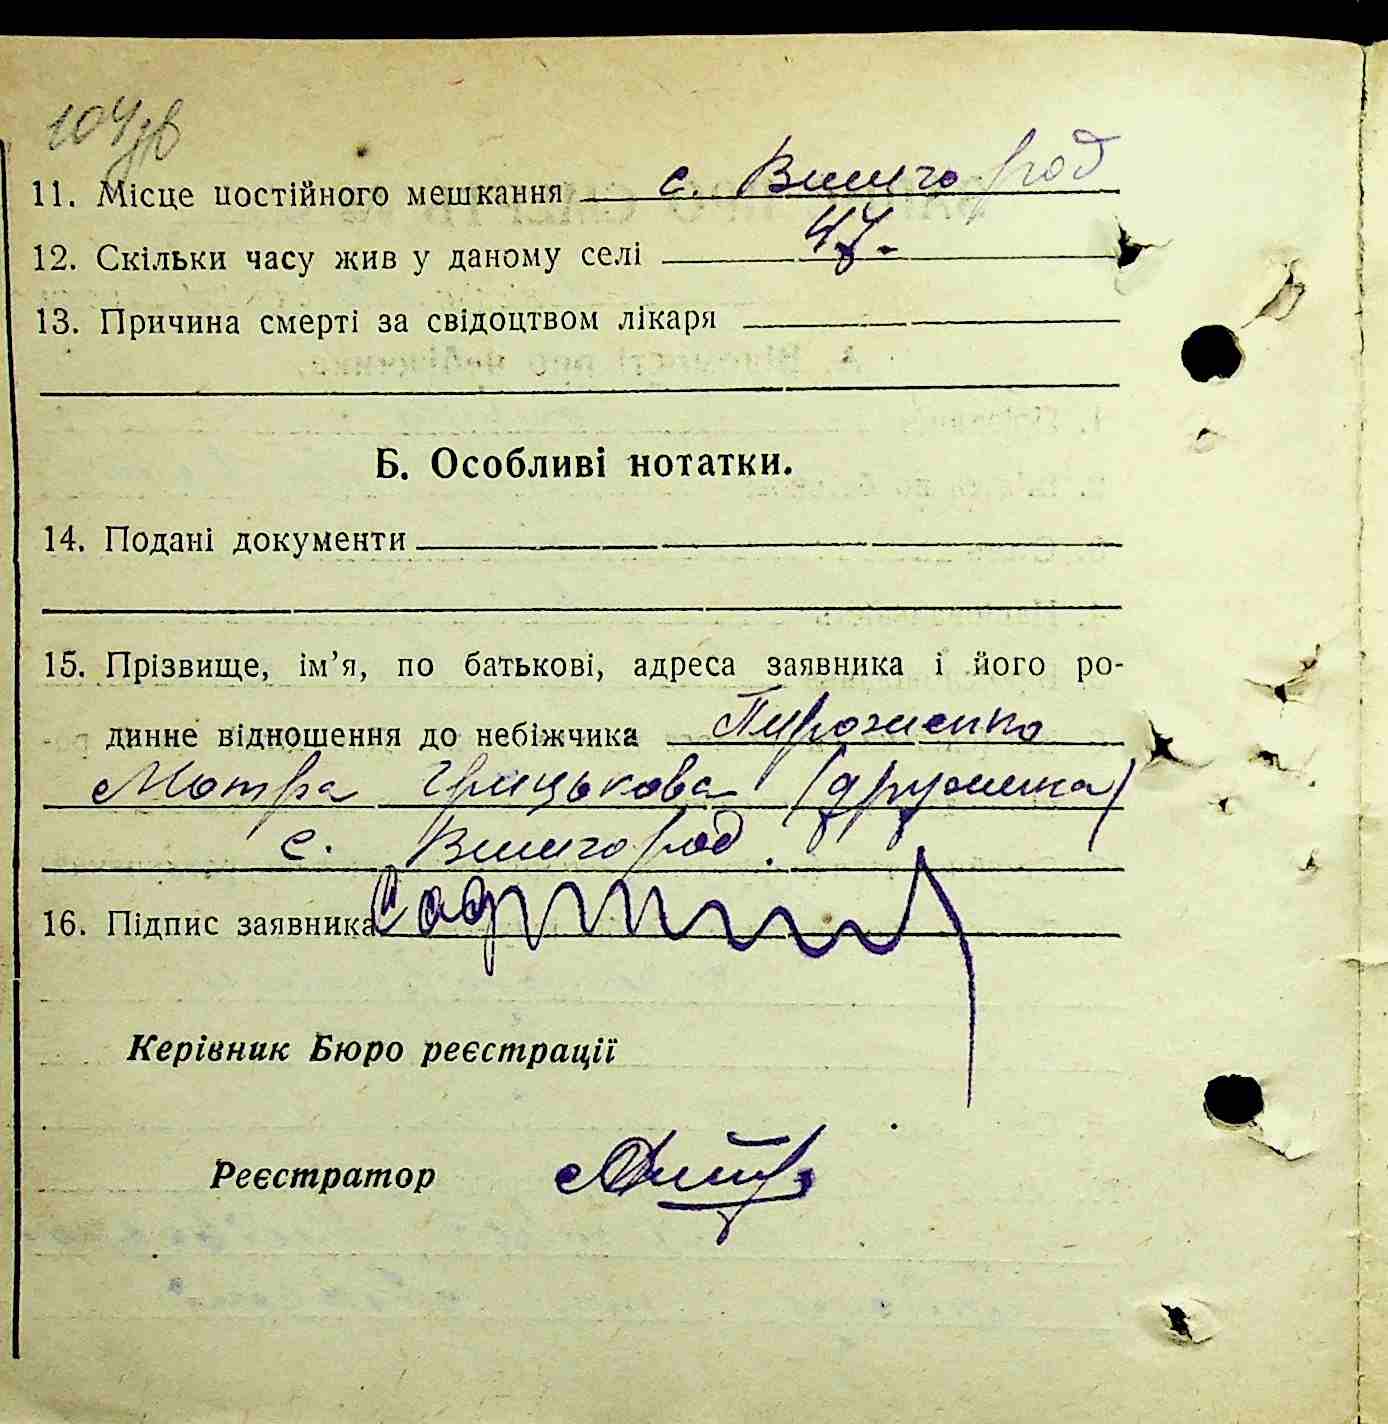 104зв
11. Місце постійного мешкання с. Вишгород
12. Скільки часу жив у даному селі 47.
13. Причина смерті за свідоцтвом лікаря
Б. Особливі нотатки.
14. Подані документи
15. Прізвище, ім’я, по батькові, адреса заявника і його ро-
динне відношення до небіжчика Пироженко
Мотра Грицькова (дружина)
с. Вишгород.
16. Підпис заявника
Керівник Бюро реєстрації
Реєстратор